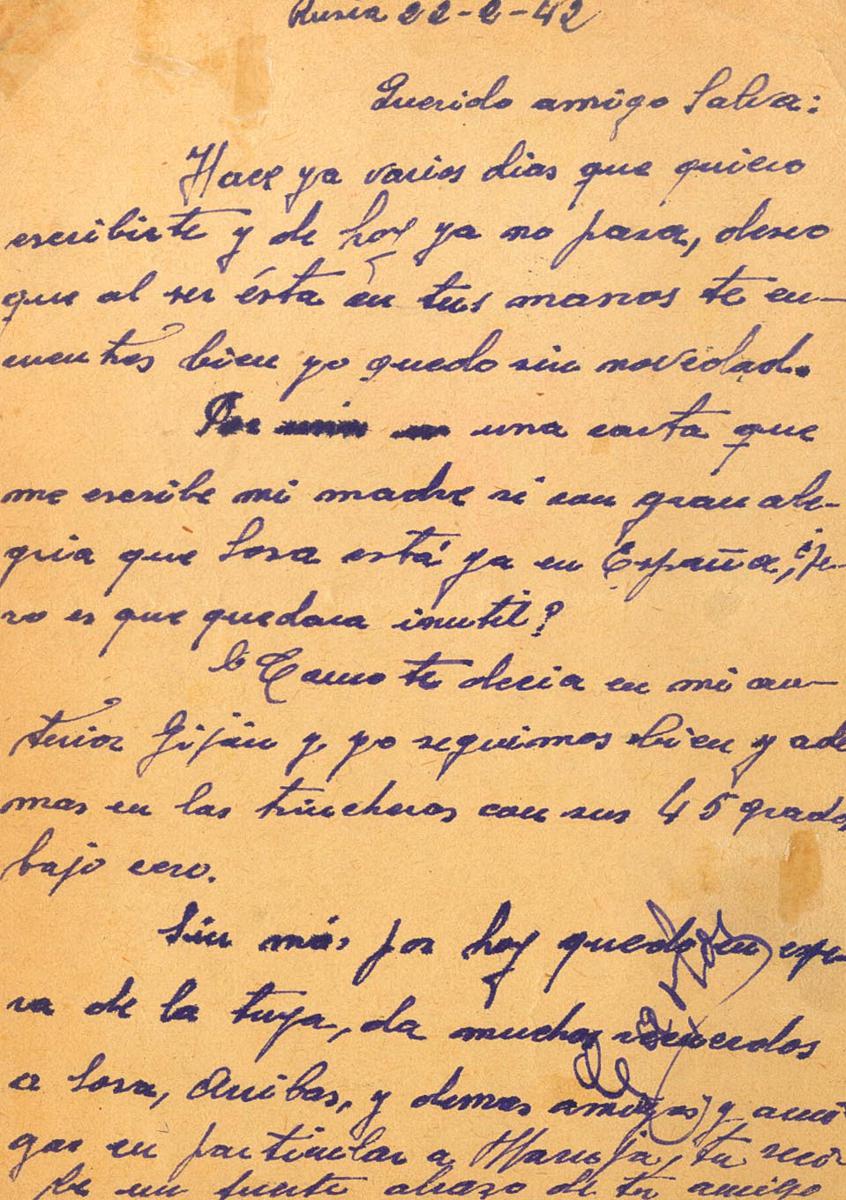 Rusia 22-2-42
Querido amigo Salva:
Hace ya varios dias que quiero
escribirte y de hoy ya no pasa, deseo
que al ser ésta en tus manos te en-
cuentres bien yo quedo sin novedad.
Por una carta que
me escribe mi madre sé con gran ale-
gria que Sosa está ya en España, ¿pe-
ro es que quedara inutil?
Como te decia en mi an-
terior Gijón y yo seguimos bien y ade
mas en las trincheras con sus 45 grados
bajo cero.
Sin más por hoy quedo en espe-
ra de la tuya, da muchos recuerdos
a Sosa, Arribas, y demas amigos y ami
gas en particular a Maruja, tu reci
be un fuerte abrazo de tu amigo